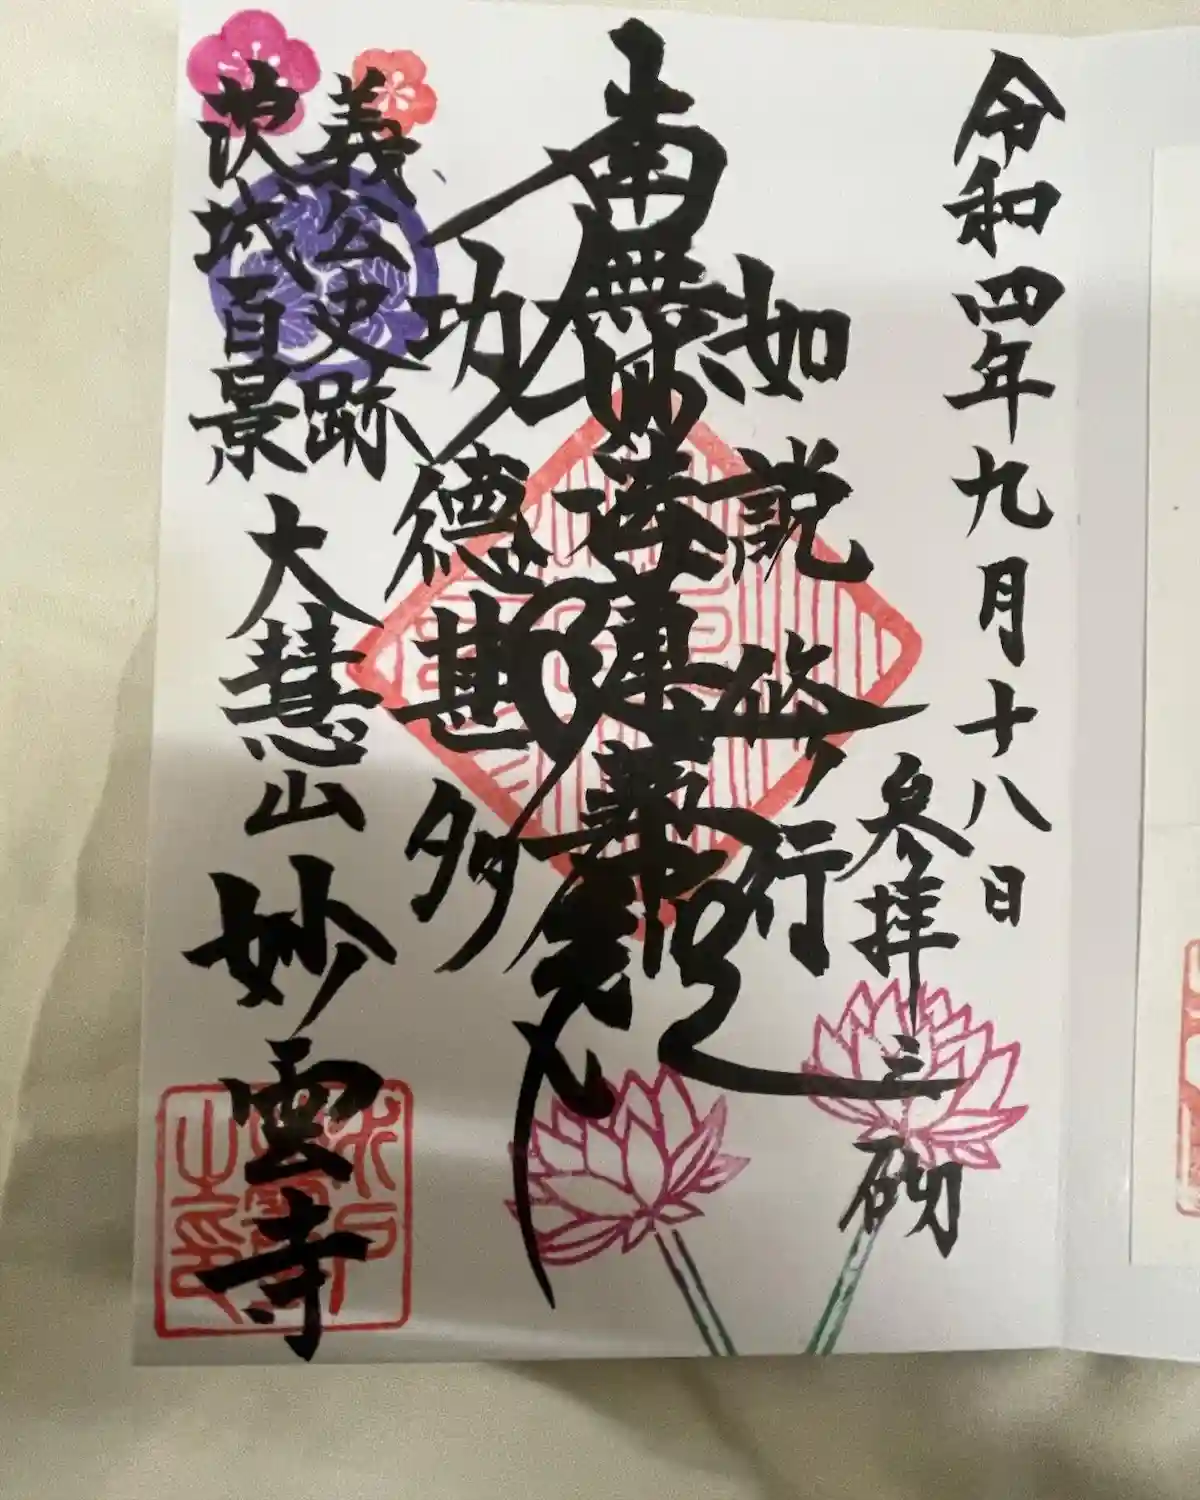 令和四年九月十八日
参拝三礽
如説修行
南無妙法蓮華経
功徳甚多
義公史跡
茨城百景
大慧山
妙雲寺